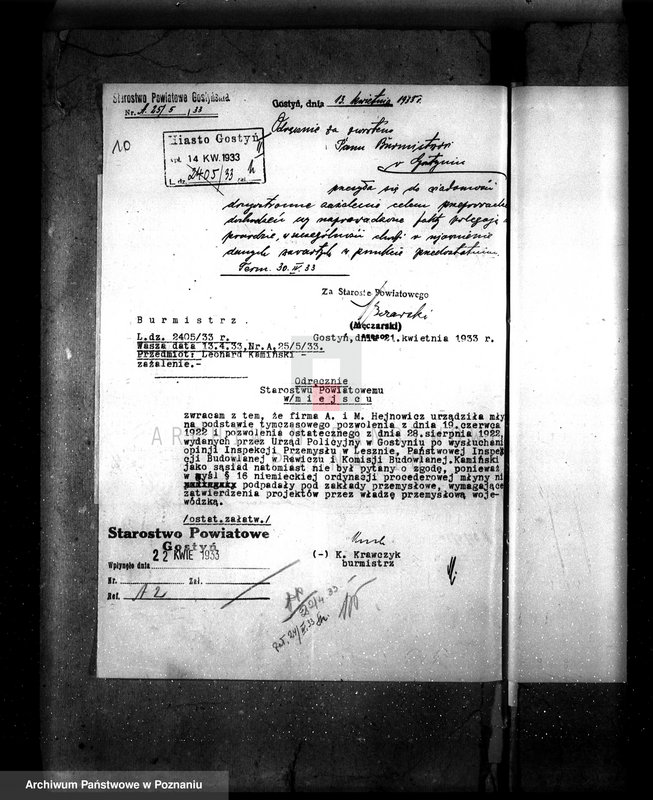 Starostwo Powiatowe Gostyńskie
Nr. A. 25/5 / 33
Gostyń, dnia 13. kwietnia 1935 r.
10
Miasto Gostyń
wpł. 14 KW. 1933
L. dz. 2405/33 zał.
Odręcznie za zwrotem
Panu Burmistrzowi
w Gostyniu
przesyła się do wiadomości
celem
dochodzeń czy naprowadzone fakty polegają
prawdzie, w szczególności
danych zawartych w punkcie przedostatnim.
Term. 30.IV.33
Za Starostę Powiatowego
(Męczarski)
asesor
Burmistrz.
L.dz. 2405/33 r.
Gostyń, dnia 21. kwietnia 1933 r.
Wasza data 13.4.33, Nr.A.25/5/33.
Przedmiot: Leonard Kamiński -
zażalenie.-
Odręcznie
Starostwu Powiatowemu
w/m i e j s c u
zwracam z tem, że firma A. i M. Hejnowicz urządziła mły
na podstawie tymczasowego pozwolenia z dnia 19.czerwca
1922 i pozwolenia ostatecznego z dnia 28.sierpnia 1922,
wydanych przez Urząd Policyjny w Gostyniu po wysłuchani
opinji Inspekcji Przemysłu w Lesznie, Państwowej Inspek
cji Budowlanej w Rawiczu i Komisji Budowlanej. Kamiński
jako sąsiad natomiast nie był pytany o zgodę, ponieważ
w myśl § 16 niemieckiej ordynacji procederowej młyny ni
podpadały pod zakłady przemysłowe, wymagające
zatwierdzenia projektów przez władzę przemysłową woje-
wódzką.
/ostat.załatw./
Starostwo Powiatowe
Gostyń
Wpłynęło dnia 22 KWIE 1933
Nr. Zał.
Ref. A 2
(-) K. Krawczyk
burmistrz
22/4.33
Archiwum Państwowe w Poznaniu